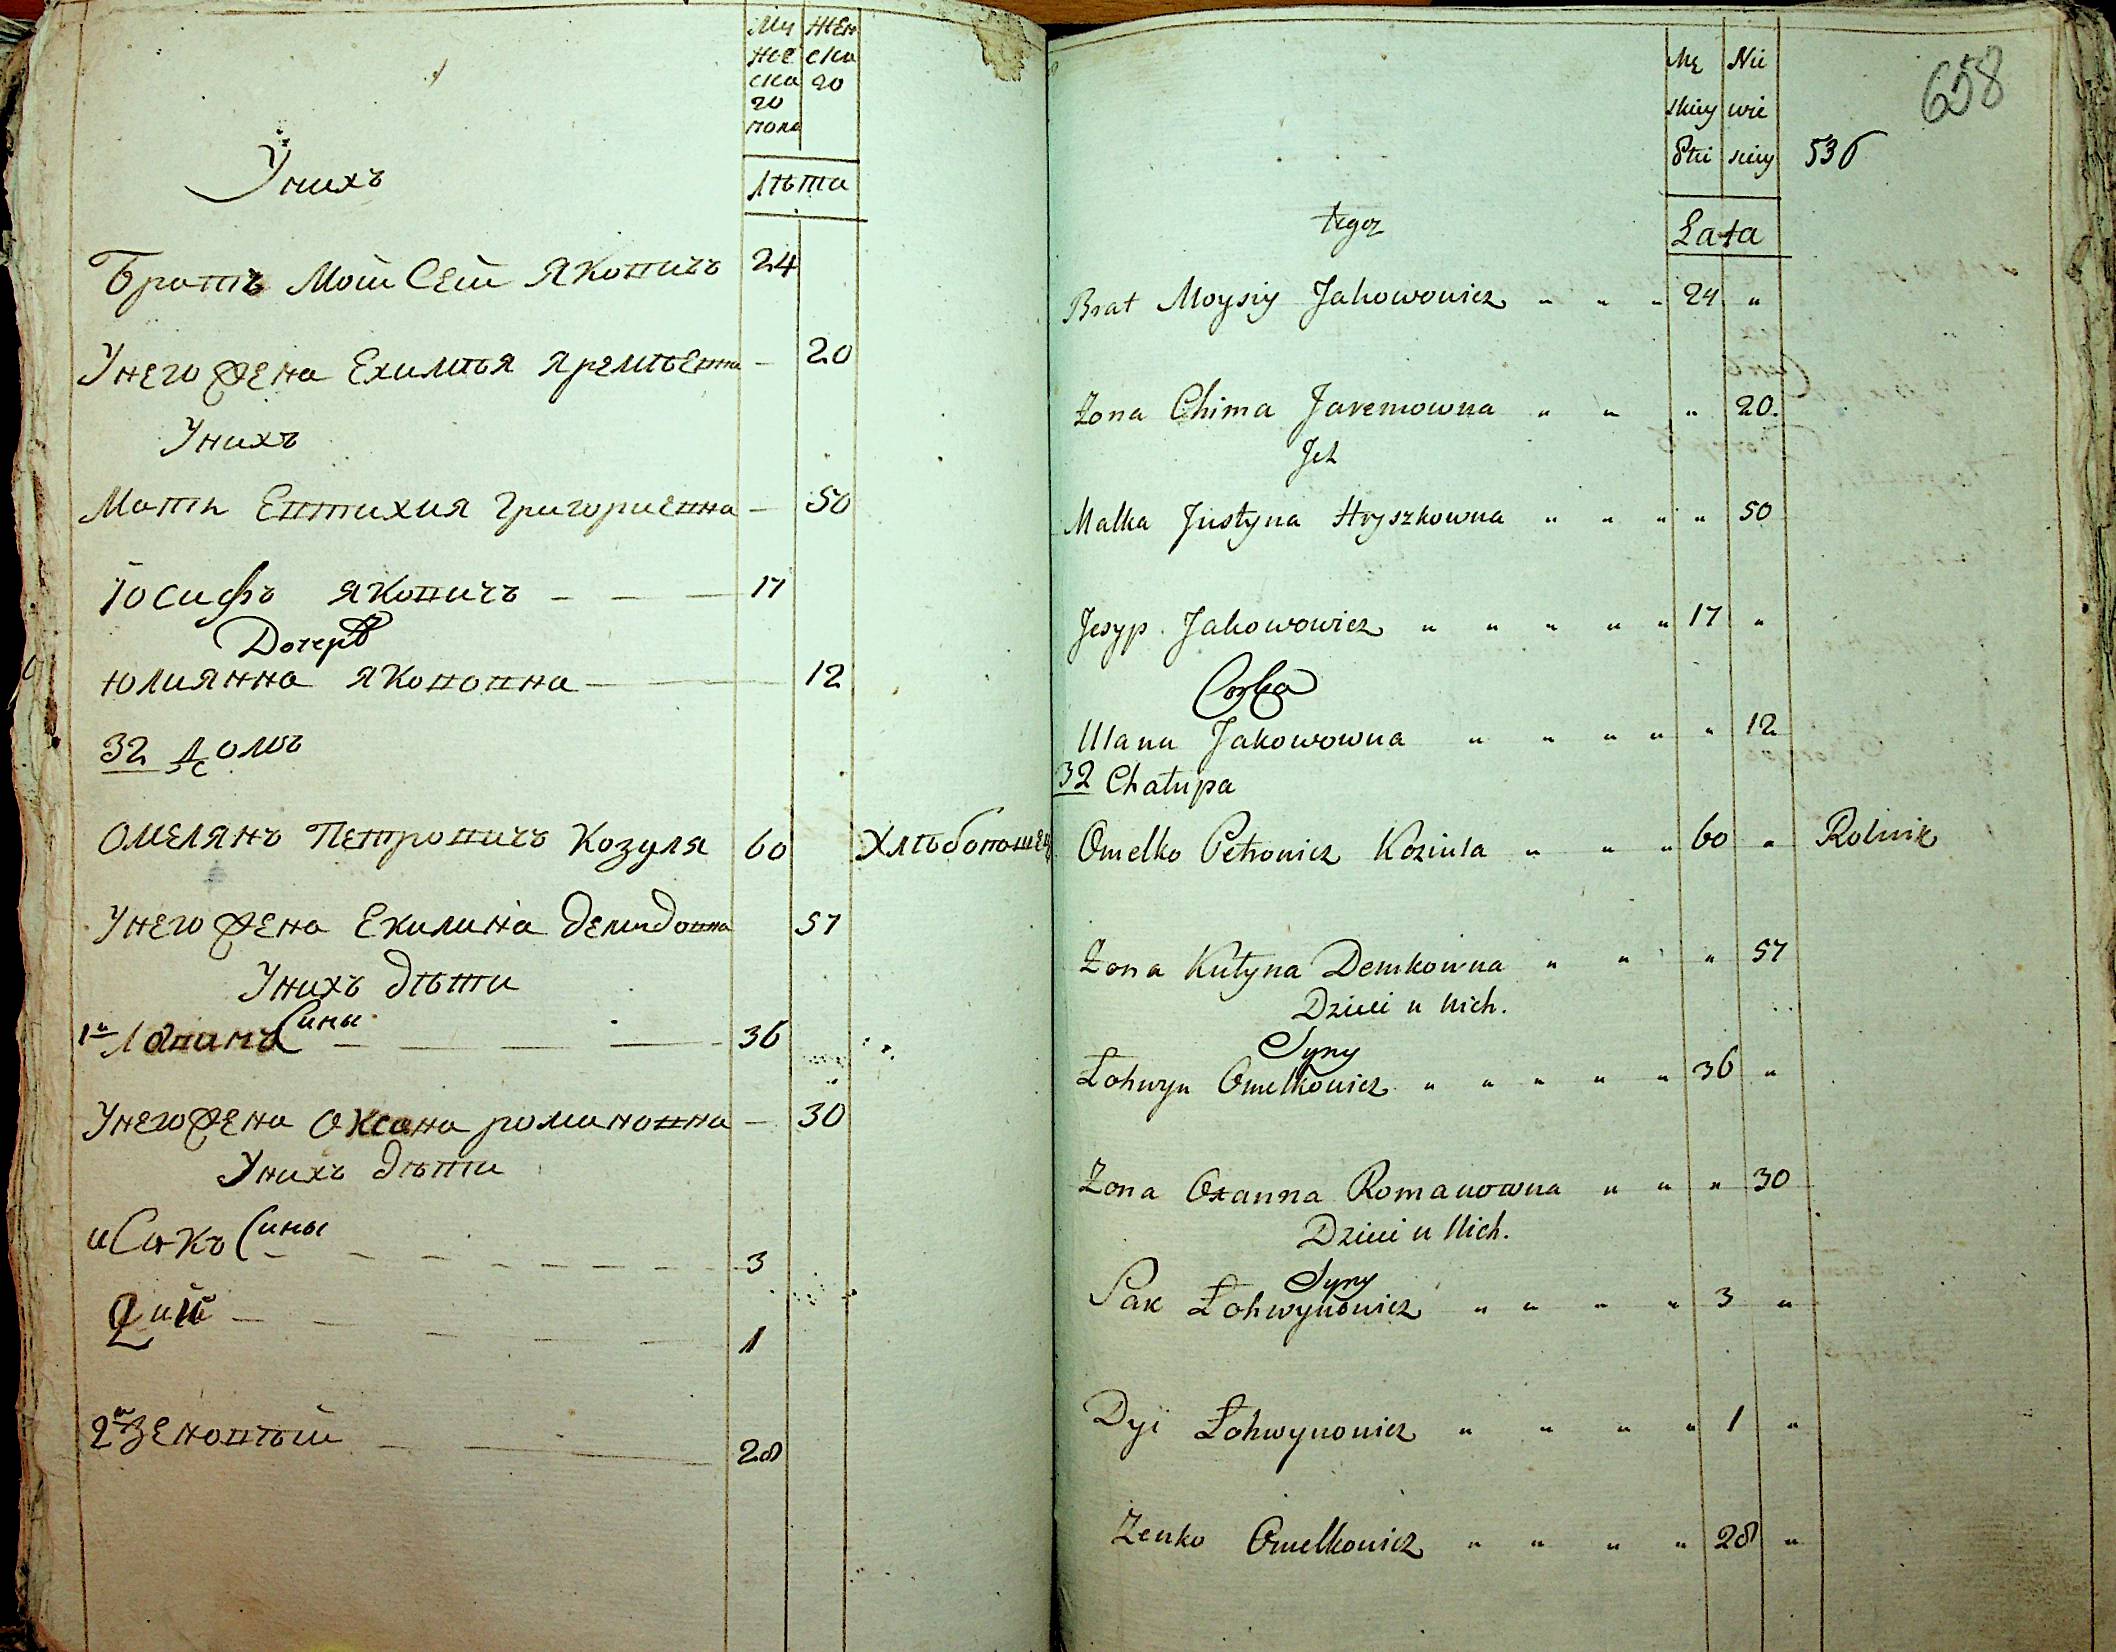 Му Жен
жес ска
ска го
го
пола
Унихъ
лѣта
Братъ Мойсей Яковичъ 24
Унего жена Ехимья Яремѣевна — 20
Унихъ
Мать Евтихия Григориевна — 50
Іосифъ Яковичъ — — — 17
Дочеръ
Юлиянна Якововна — 12
32 Домъ
Омелянъ Петровичъ Козуля 60 Хлѣбопашец
Унего жена Екилина Демидовна 57
Унихъ дѣти
Сины
1й Логвинъ — — — — 36
Унего жена Оксана романовна — 30
Унихъ дѣти
Сины
иСакъ — — — — — — — 3
Дий — — — — — 1
2й Зеновѣй — — 28
658
Mę Nie
skiey wie
Płci skiey 536
tegoz
Lata
Brat Moysiy Jakowowicz " " " 24 "
Zona Chima Jaremowna " " " 20.
Jch
Matka Justyna Hryszkowna " " " " 50
Josyp Jakowowicz " " " " " 17 "
Corka
Ulana Jakowowna " " " " " 12
32 Chałupa
Omelko Petrowicz Koziula " " " 60 " Rolnik
Zona Kulyna Demkowna " " " 57
Dzieci u Nich.
Syny
Łohwyn Omelkowicz " " " " " 36 "
Zona Oxanna Romanowna " " " 30
Dzieci u Nich.
Syny
Sak Łohwynowicz " " " " 3 "
Dyi Łohwynowicz " " " " 1 "
Zenko Omelkowicz " " " " 28 "